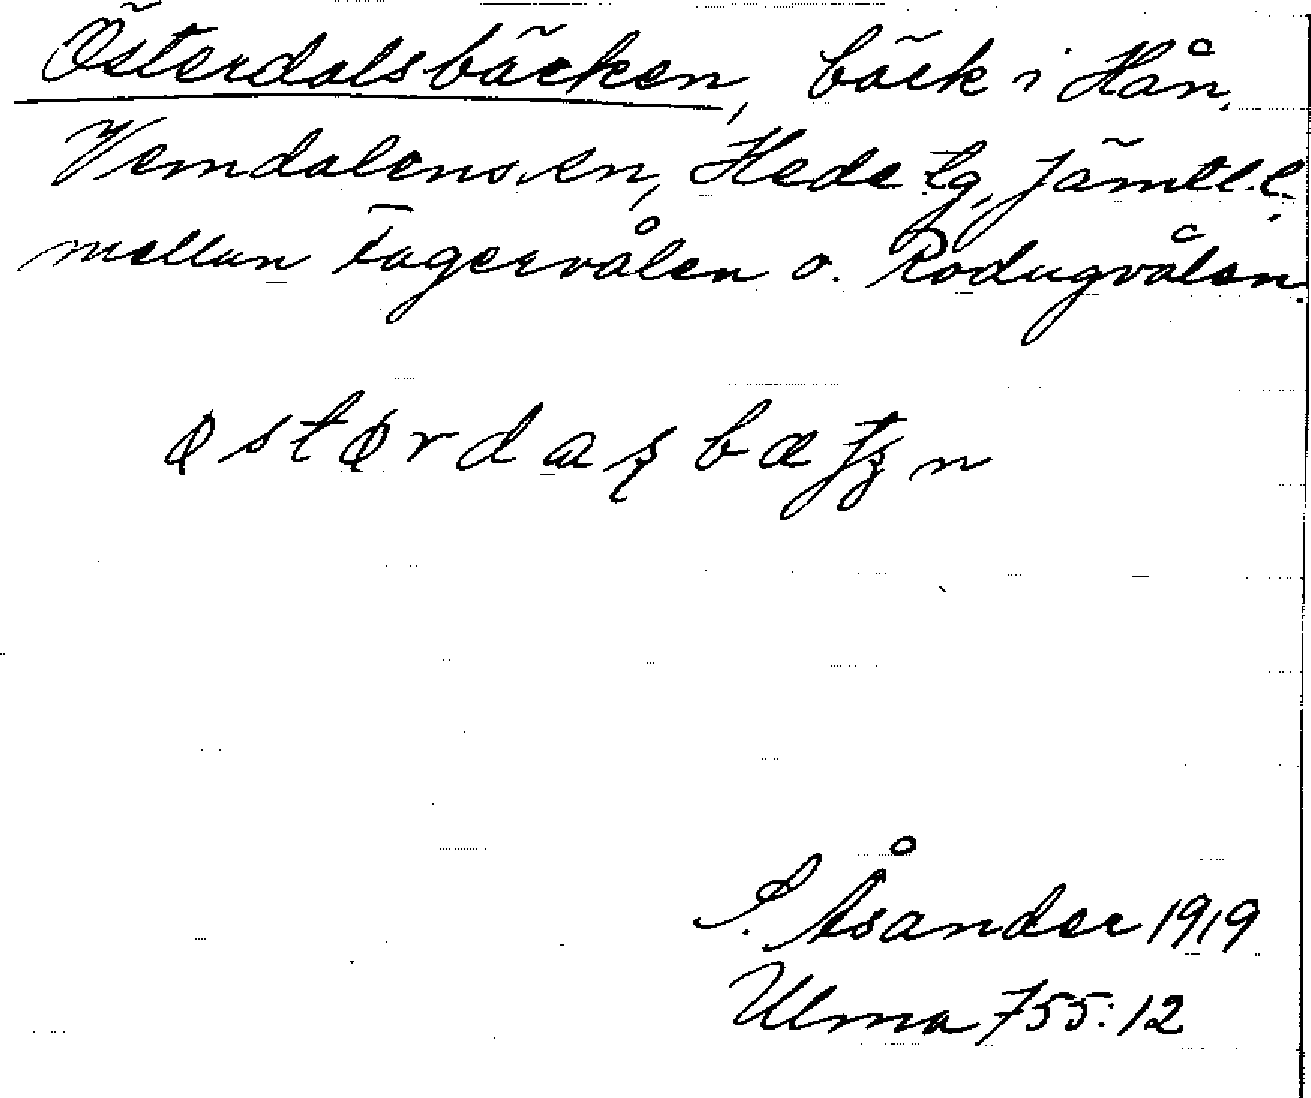 Österdalsbäcken, bäck i Hån,
Vemdalens sn, Hede tg, Jämtl. l.
mellan Fagervålen o. Rödugvålen.
østørdaʂbæ
S. Åsander 1919
Ulma 755:12